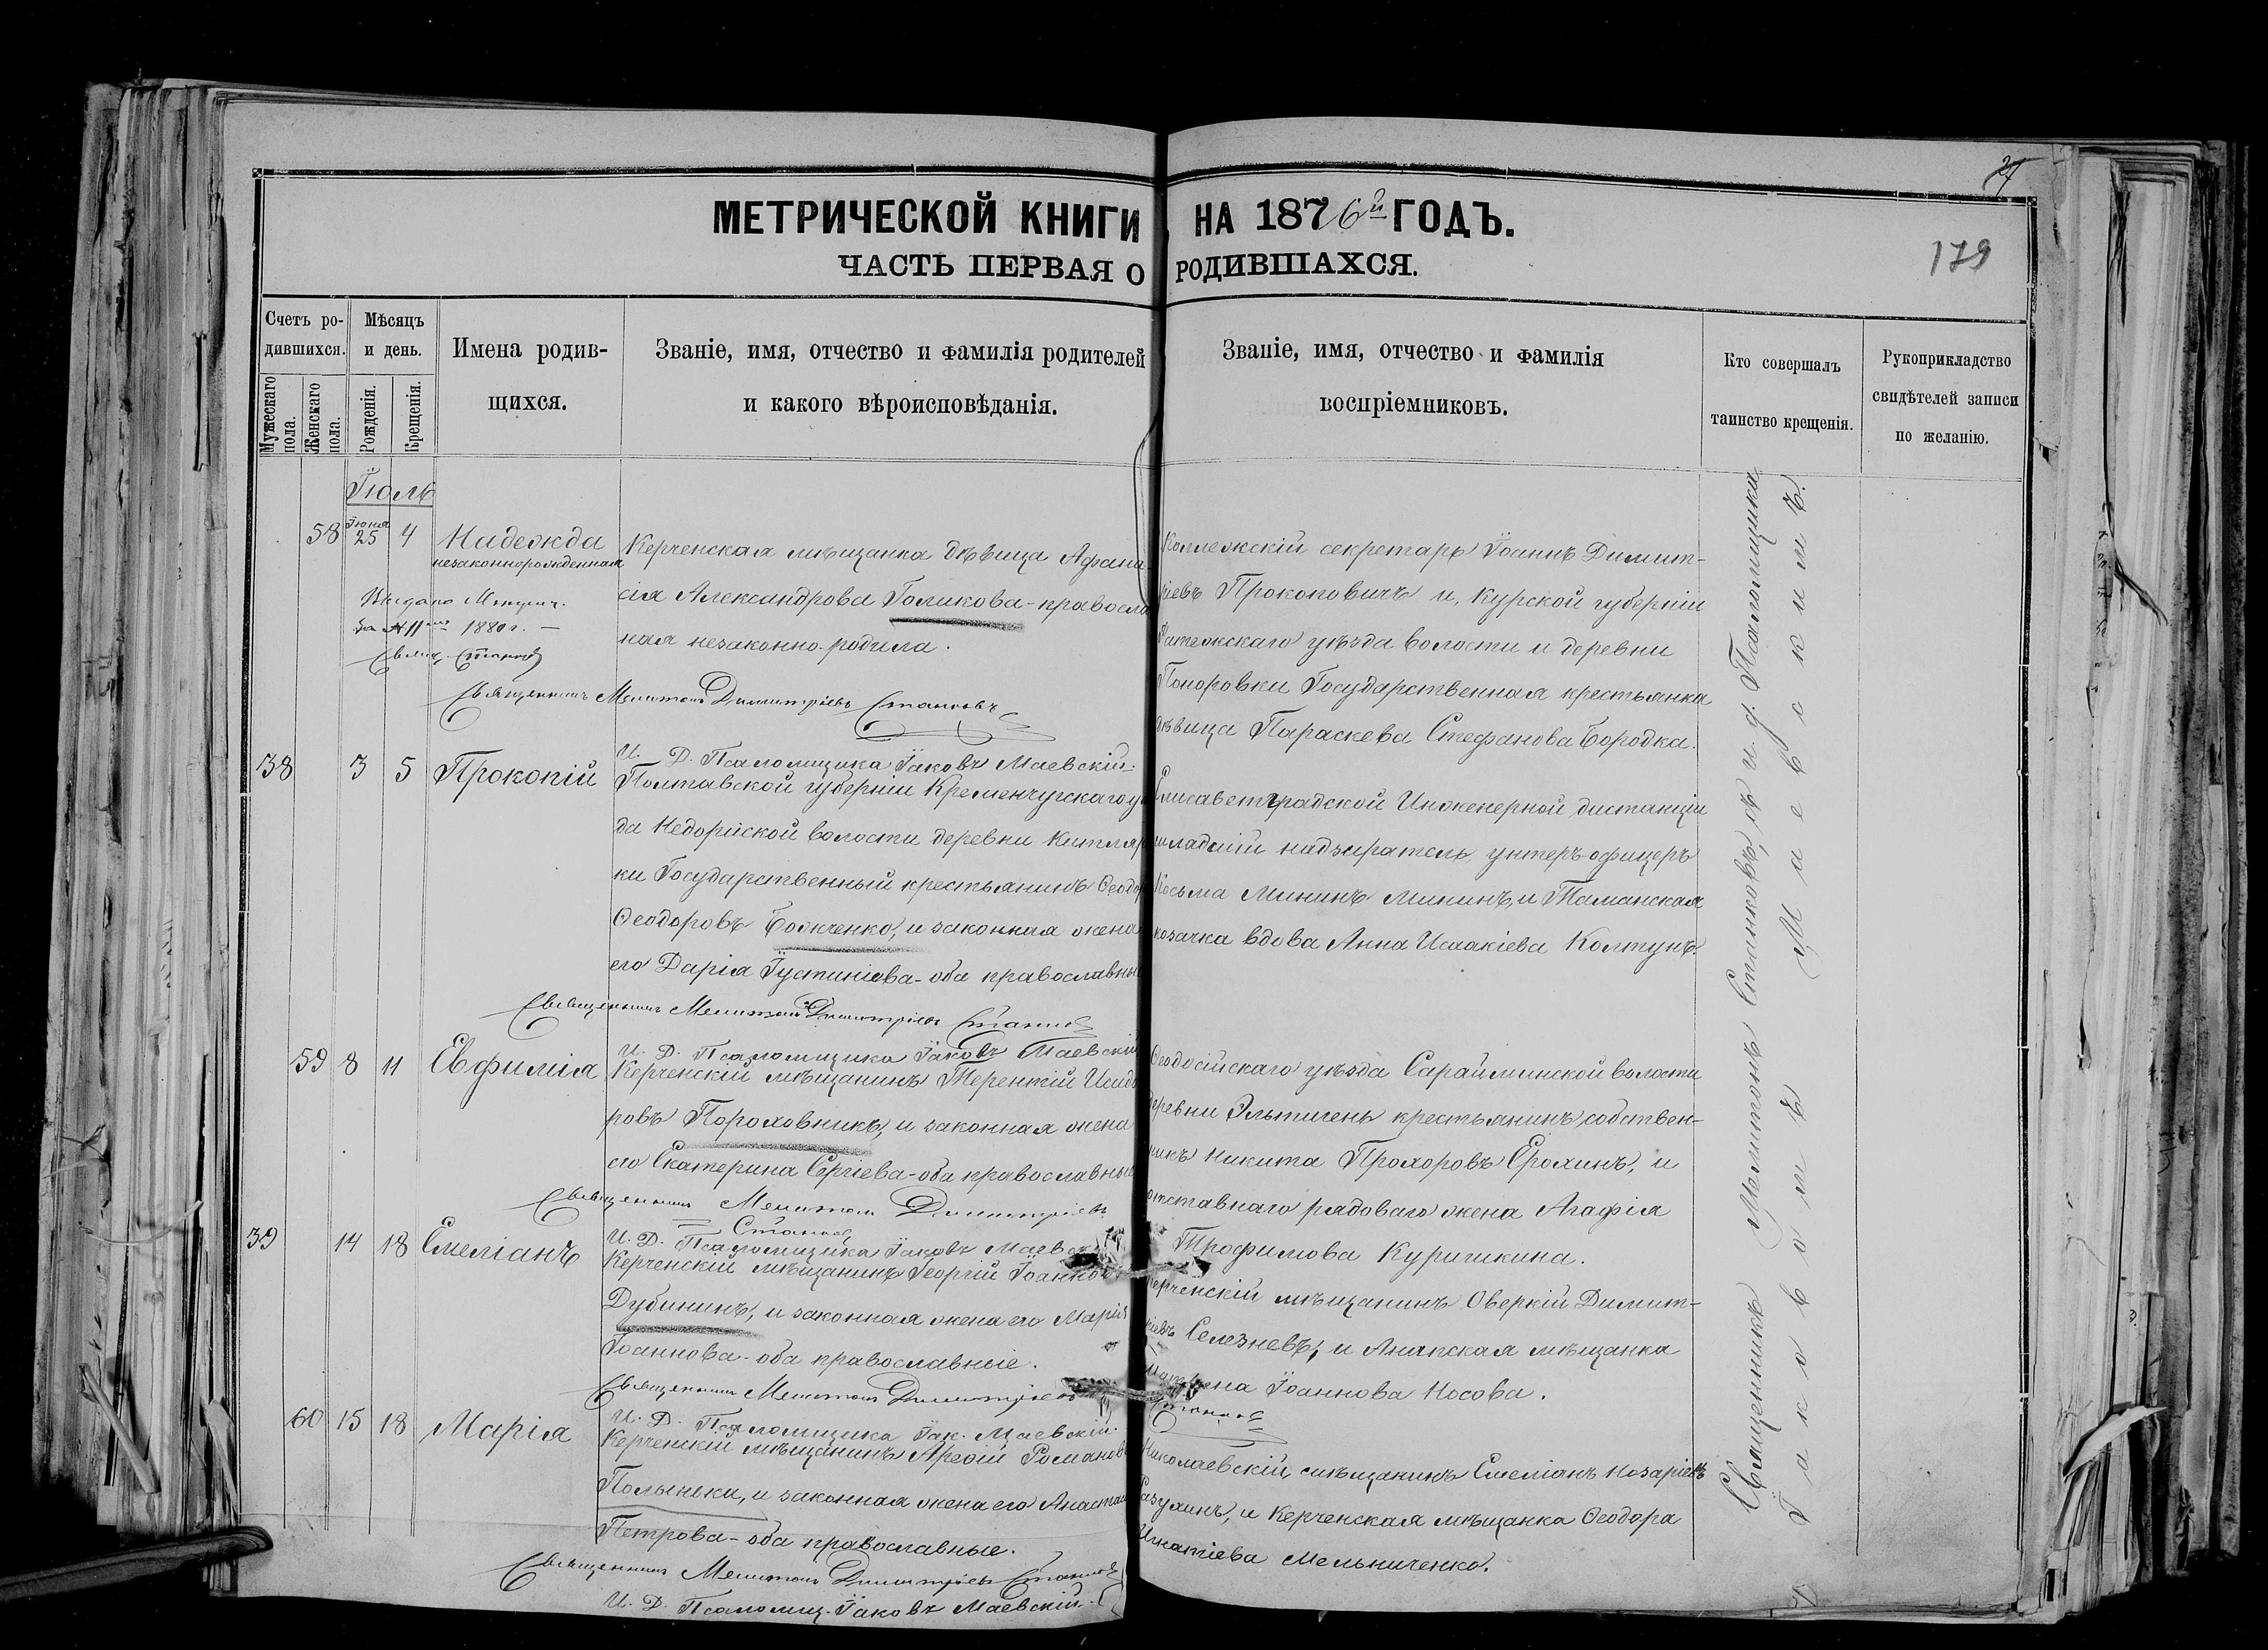 27
МЕТРИЧЕСКОЙ КНИГИ НА 1876й ГОДЪ.
ЧАСТЬ ПЕРВАЯ О РОДИВШАХСЯ.
179
Счетъ ро-
дившихся.
Мужескаго пола.
Женскаго пола.
Мѣсяцъ
и день.
Рожденія.
Крещенія.
Имена родив-
щихся.
Званіе, имя, отчество и фамилія родителей
и какого вѣроисповѣданія.
Званіе, имя, отчество и фамилія
воспріемниковъ.
Кто совершалъ
таинство крещенія.
Рукоприкладство
свидѣтелей записи
по желанію.
Іюль
58 Іюня 25 4 Надежда
незаконнорожденная
Выдано
за № 11 1880 г.
Керченская мѣщанка дѣвица Афана-
сія Александрова Голикова - правосла
ная незаконно родила.
Священникъ Мелитонъ Димитріевъ Станковъ
И. Д. Псаломщика Іаковъ Маевскій.
Коллежскій секретарь Іоаннъ Димит-
ріевъ Прокоповичъ и, Курской губерніи
Фатежскаго уѣзда волости и деревни
Поноровки Государственная крестьянка
дѣвица Параскева Стефанова Бородка.
38 3 5 Прокопій
Полтавской губерніи Кременчугскаго уѣ
да Недорійской волости деревни
ки Государственный крестьянинъ Ѳеодор
Ѳеодоровъ Божченко, и законная жена
его Дарія Іустиніева - оба православные
Священникъ Мелитонъ Димитріевъ Станковъ
И. Д. Псаломщика Іаковъ Маевскій
Елисаветградской Инженерной дистанціи
младшій надзиратель унтеръ-офицеръ
Косьма Мининъ Мининъ, и Таманская
козачка вдова Анна Исаакіева Колтунъ.
59 8 11 Евфимія
Керченскій мѣщанинъ Терентій Исидо
ровъ Пороховникъ, и законная жена
его Екатерина Сергіева - оба православные
Священникъ Мелитонъ Димитріевъ
Станковъ
И. Д. Псаломщика Іаковъ Маевскій
Ѳеодосійскаго уѣзда Сарайминской волости
деревни Эльтигень крестьянинъ собствен-
никъ Никита Прохоровъ Ерохинъ, и
отставнаго рядоваго жена Агафія
Трофимова Куришкина.
39 14 18 Емеліанъ
Керченскій мѣщанинъ Георгій Іоаннов
Дубининъ, и законная жена его Марія
Іоаннова - оба православные.
Священникъ Мелитонъ Димитріевъ Станковъ
И. Д. Псаломщика Іак. Маевскій.
Керченскій мѣщанинъ Оверкій Димит-
ріевъ Селезневъ, и Анапская мѣщанка
Іоаннова Носова.
60 15 18 Марія
Керченскій мѣщанинъ Романов
Полынски, и законная жена его Анастас
Петрова - оба православные.
Священникъ Мелитонъ Димитріевъ Станковъ
И. Д. Псаломщ. Іаковъ Маевскій.
Николаевскій мѣщанинъ Емеліанъ Назаріевъ
и Керченская мѣщанка Ѳеодора
Игнатіева Мельниченко.
Священникъ Мелитонъ Станковъ, и и. д. Псаломщика
Іаковъ Маевскій